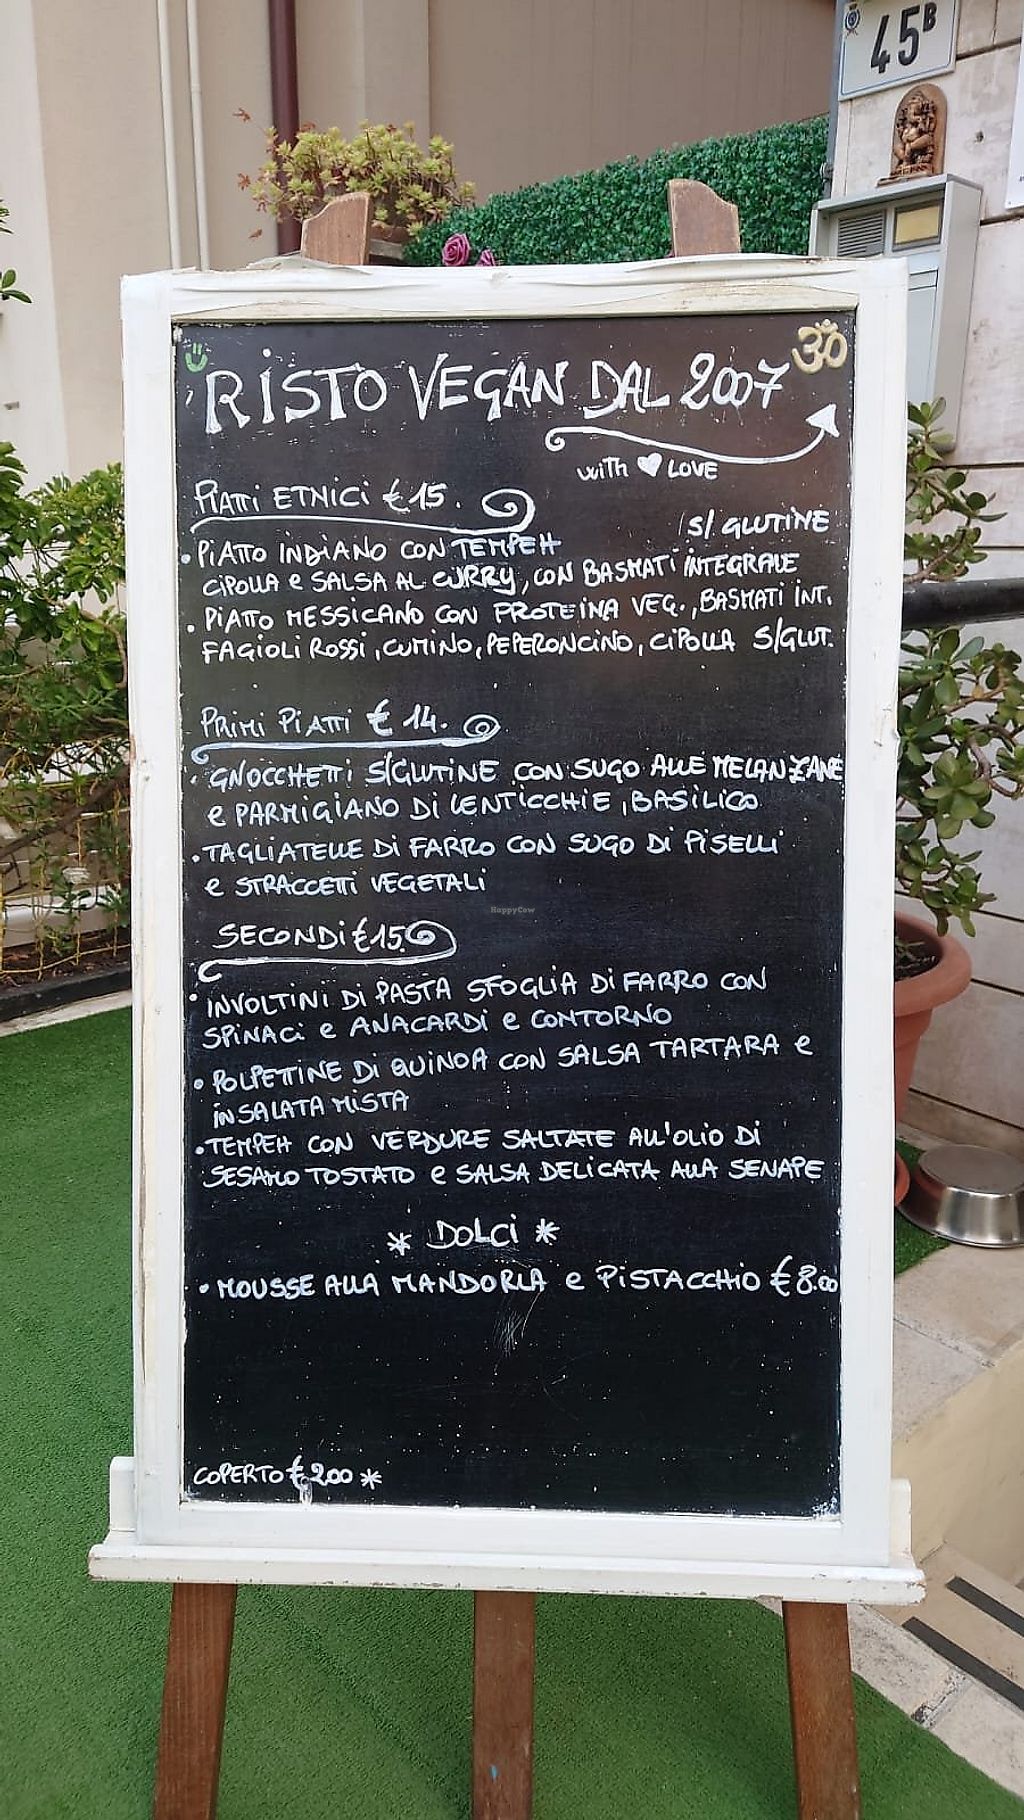 45B
RISTO VEGAN DAL 2007
ॐ
with LOVE
PIATTI ETNICI € 15.
S/GLUTINE
• PIATTO INDIANO CON TEMPEH
CIPOLLA e SALSA AL CURRY, CON BASMATI INTEGRALE
• PIATTO MESSICANO CON PROTEINA VEG., BASMATI INT.
FAGIOLI ROSSI, CUMINO, PEPERONCINO, CIPOLLA S/GLUT.
PRIMI PIATTI € 14.
• GNOCCHETTI S/GLUTINE CON SUGO ALLE MELANZANE
e PARMIGIANO DI LENTICCHIE, BASILICO
• TAGLIATELLE DI FARRO CON SUGO DI PISELLI
e STRACCETTI VEGETALI
HappyCow
SECONDI €15.
• INVOLTINI DI PASTA SFOGLIA DI FARRO CON
SPINACI e ANACARDI e CONTORNO
• POLPETTINE DI QUINOA CON SALSA TARTARA e
INSALATA MISTA
• TEMPEH CON VERDURE SALTATE ALL'OLIO DI
SESAMO TOSTATO e SALSA DELICATA ALLA SENAPE
* DOLCI *
• MOUSSE ALLA MANDORLA e PISTACCHIO € 8.00
COPERTO € 2.00 *